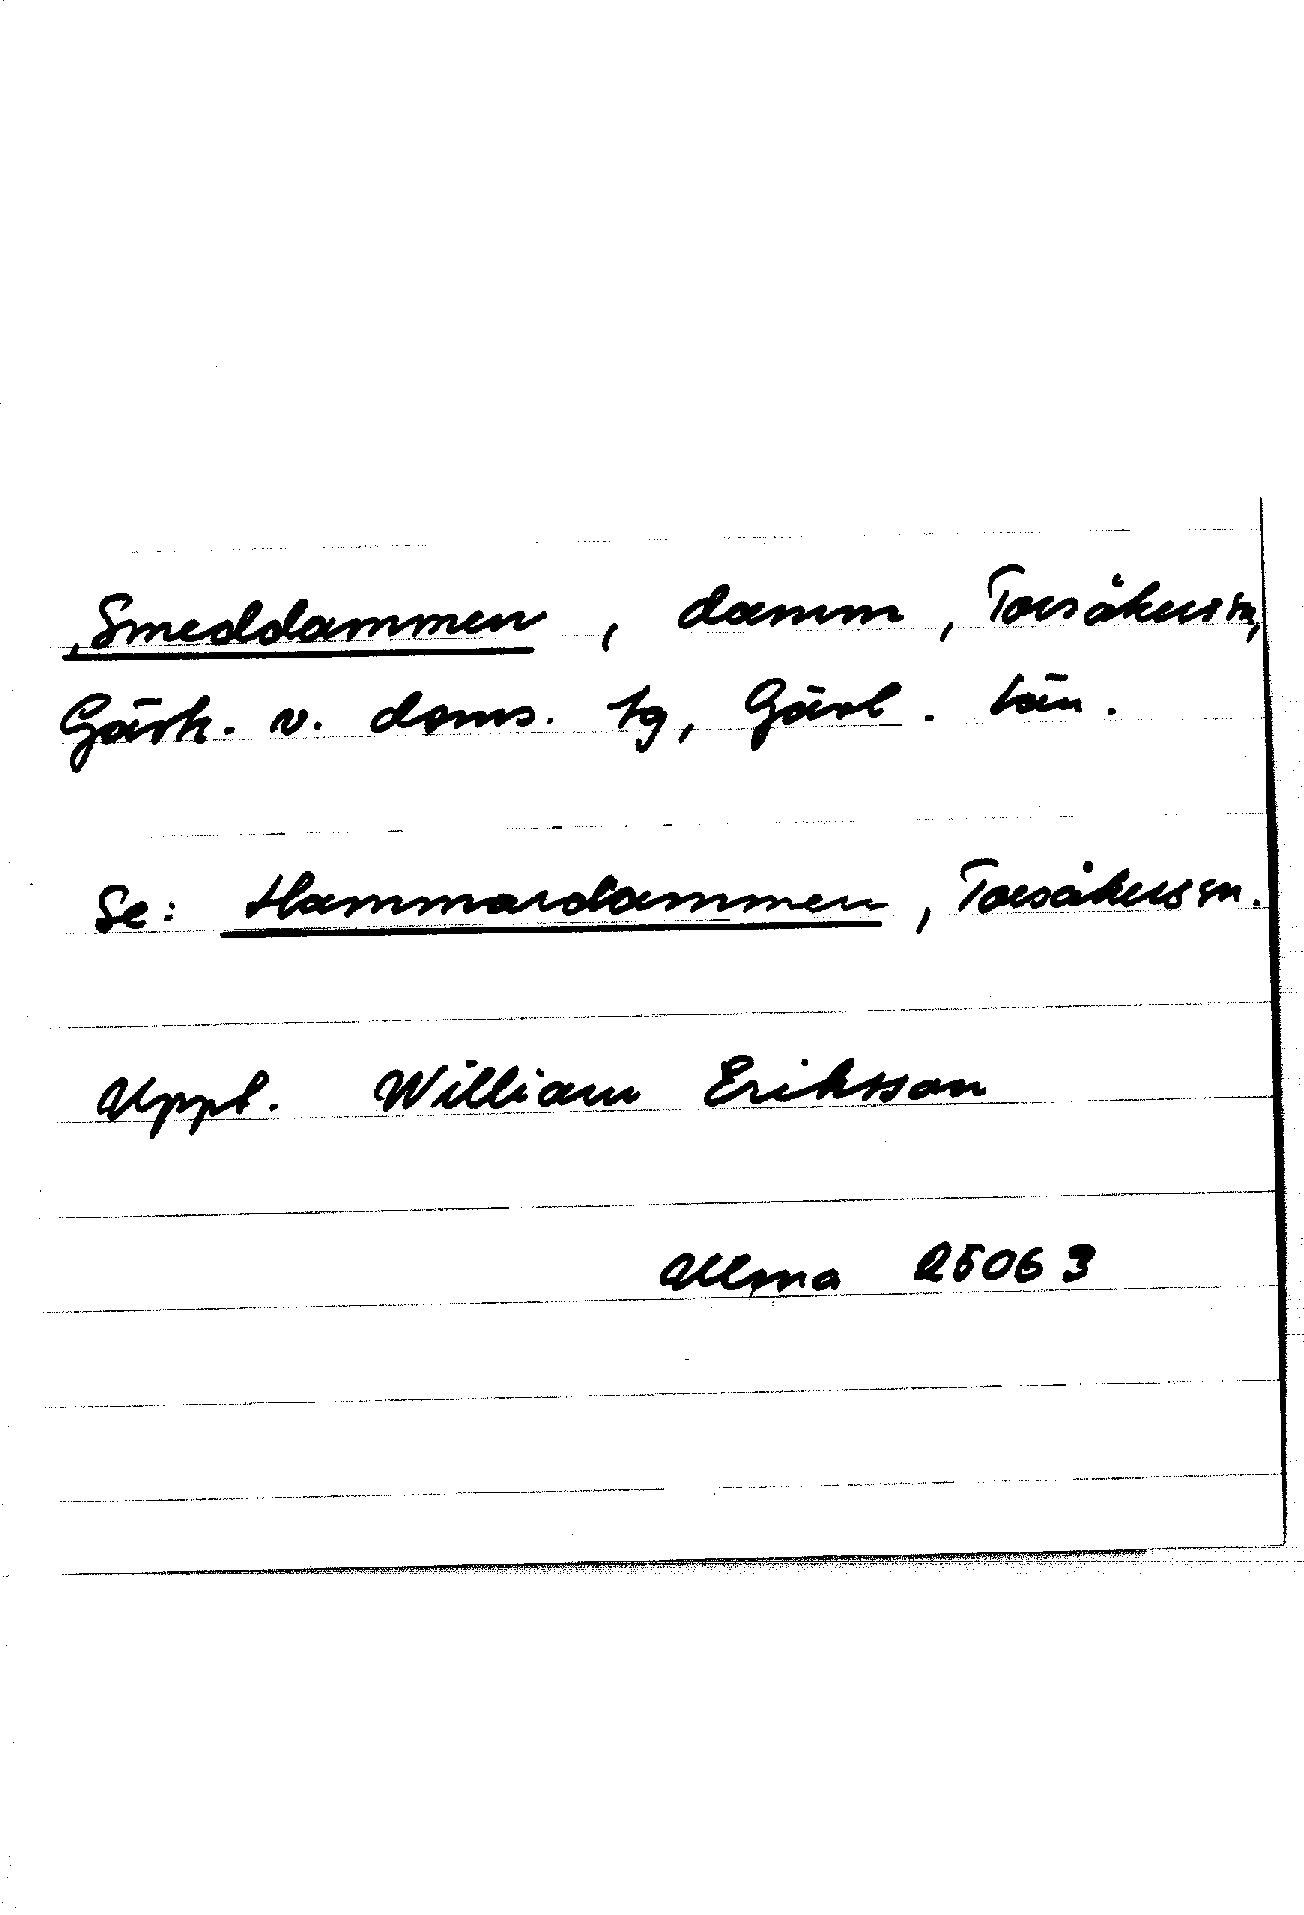 Smeddammen, damm, Torsåkers sn,
Gästr. v. doms. tg, Gävl. län.
Se: Hammardammen, Torsåkers sn.
Uppt. William Eriksson
Ulma 25063